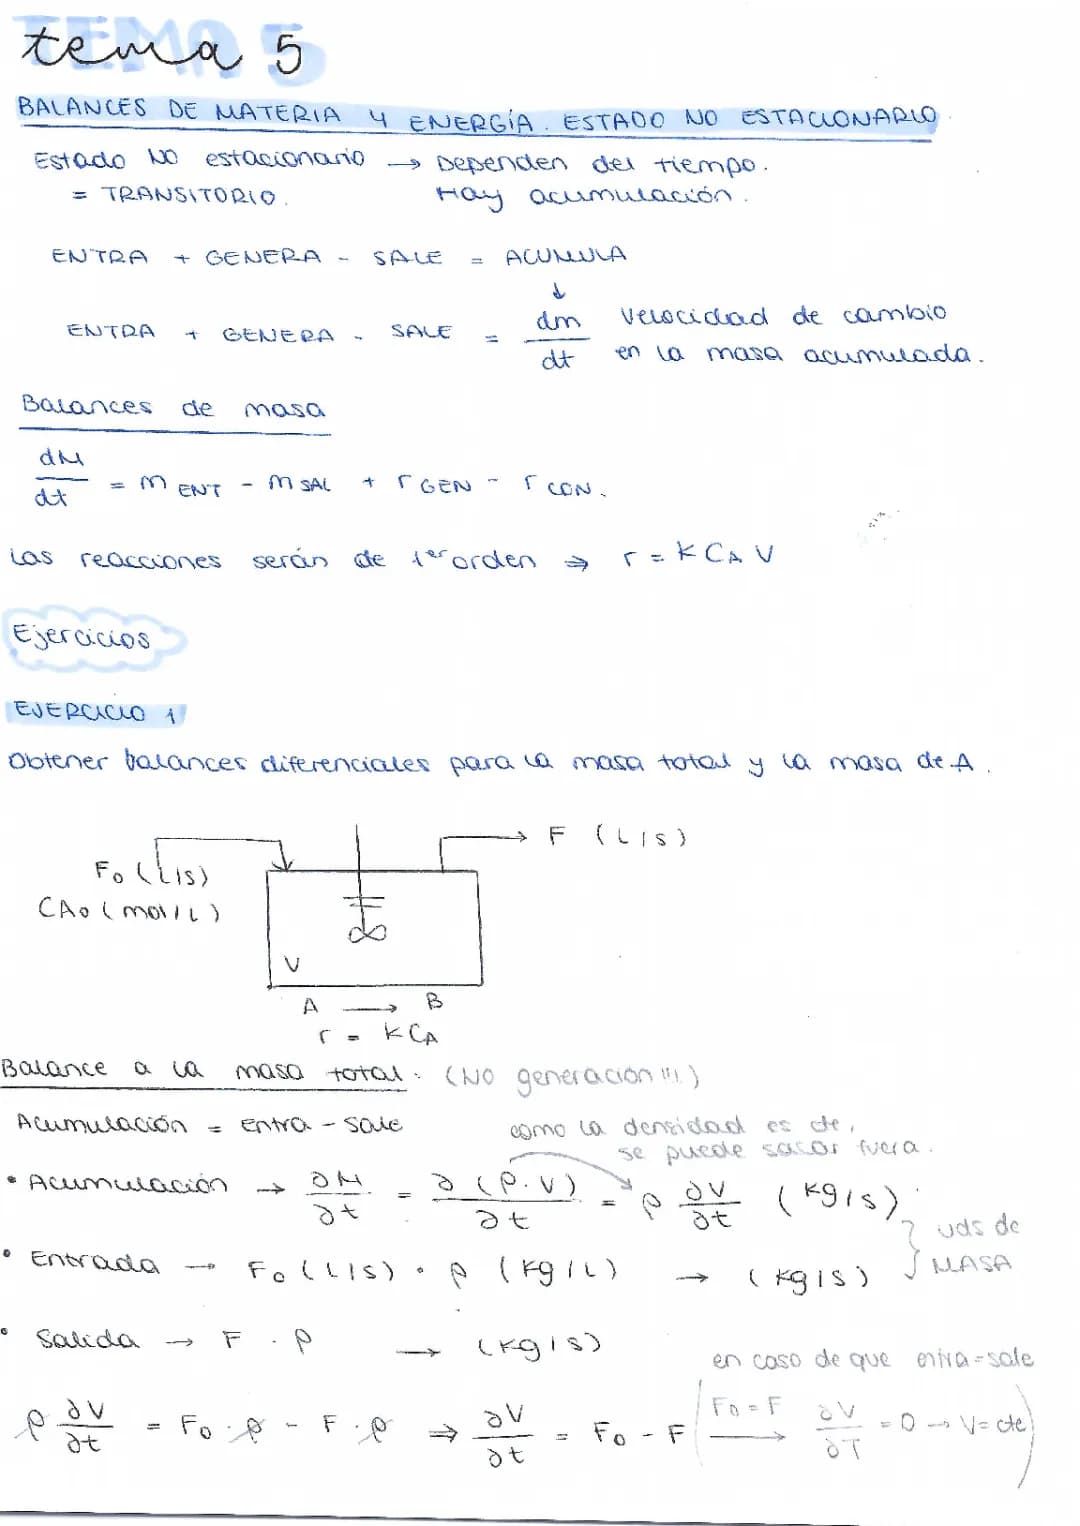 TEMA 5
tema 5
BALANCES DE MATERIA Y ENERGÍA. ESTADO NO ESTACIONARIO
Estado NO estacionario → Dependen del tiempo.
= TRANSITORIO. Hay acumulación.
ENTRA + GENERA - SALE = ACUMULA
↓
ENTRA + GENERA - SALE = dm/dt velocidad de cambio
en la masa acumulada.
Balances de masa
dM/dt = m ENT - m SAL + r GEN - r CON.
Las reacciones serán de 1er orden ⇒ r = K CA V
Ejercicios
EJERCICIO 1
Obtener balances diferenciales para la masa total y la masa de A.
F (L/s)
Fo (L/s)
CAo (mol/L)
V
A → B
r = K CA
Balance a la masa total: (NO generación !!!)
Acumulación = entra - sale
como la densidad es cte,
se puede sacar fuera.
• Acumulación → ∂M/∂t = ∂(ρ·V)/∂t = ρ ∂V/∂t (kg/s)
• Entrada → Fo (L/s) · ρ (kg/L) → (kg/s)
uds de
MASA
• Salida → F · ρ → (kg/s)
en caso de que entra=sale
ρ ∂V/∂t = Fo · ρ - F · ρ ⇒ ∂V/∂t = Fo - F (Fo = F → ∂V/∂T = 0 → V = cte)